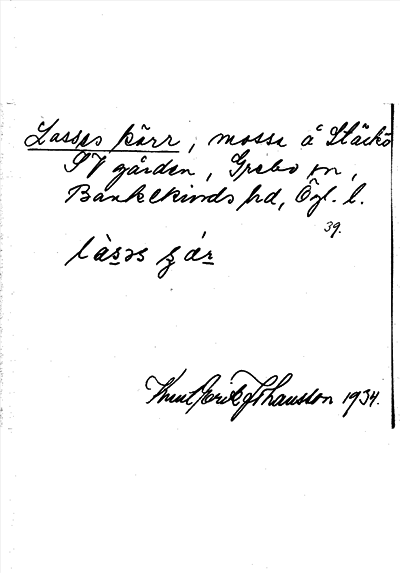 Lasses kärr, mossa å Släckö
SV gården, Grebo sn,
Bankekinds hd, Ögl. l.
39.
làsəs
Knut Erik Johansson 1934.